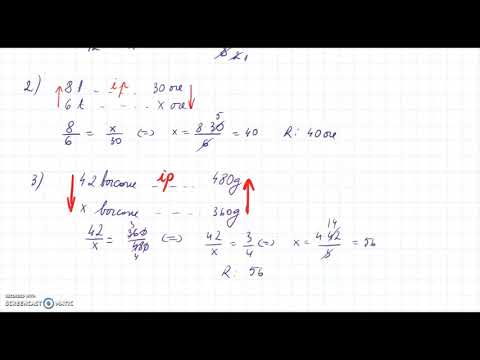 2) 8 t .. ip. 30 ore
6 t - . . . . x ore
8/6 = x/30 (=) x = 8·30 5/6 = 40 R: 40 ore
3) 42 borcane ip .... 480g
x borcane - . . . . 360g
42/x = 3 360/480 4 (=) 42/x = 3/4 (=) x = 4·42 14/3 = 56
R: 56
RECORDED WITH
SCREENCAST MATIC